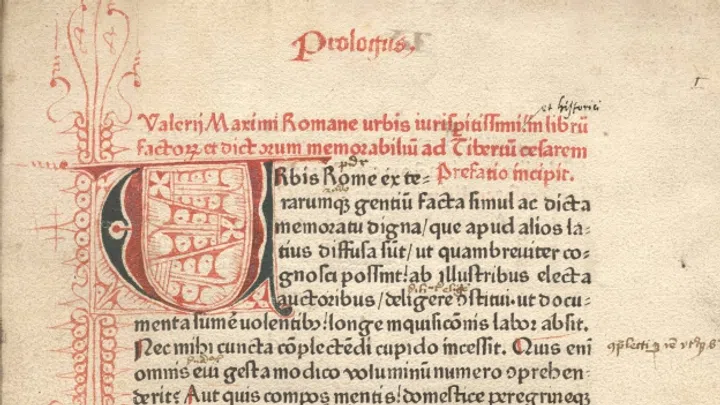 Prologus.
et historici
Valerij Maximi Romane urbis iurisperitissimi: in librū
Factoꝝ et dictorum memorabiliū ad Tiberiū cesarem
Prefatio incipit.
URbis Rome exte-
rarumqꝫ gentiū facta simul ac dicta
memoratu digna/que apud alios la-
tius diffusa sūt/ut quam breuiter co-
gnosci possint: ab illustribus electa
auctoribus/deligere ꝯstitui. ut docu-
menta sumē uolentibꝫ: longe inquisicōnis labor absit.
Nec mihi cuncta cōplectēdi cupido incessit. Quis eni
omnis eui gesta modico voluminū numero ꝯprehen-
derit: Aut quis compos mentis: domestice peregrineqꝫ